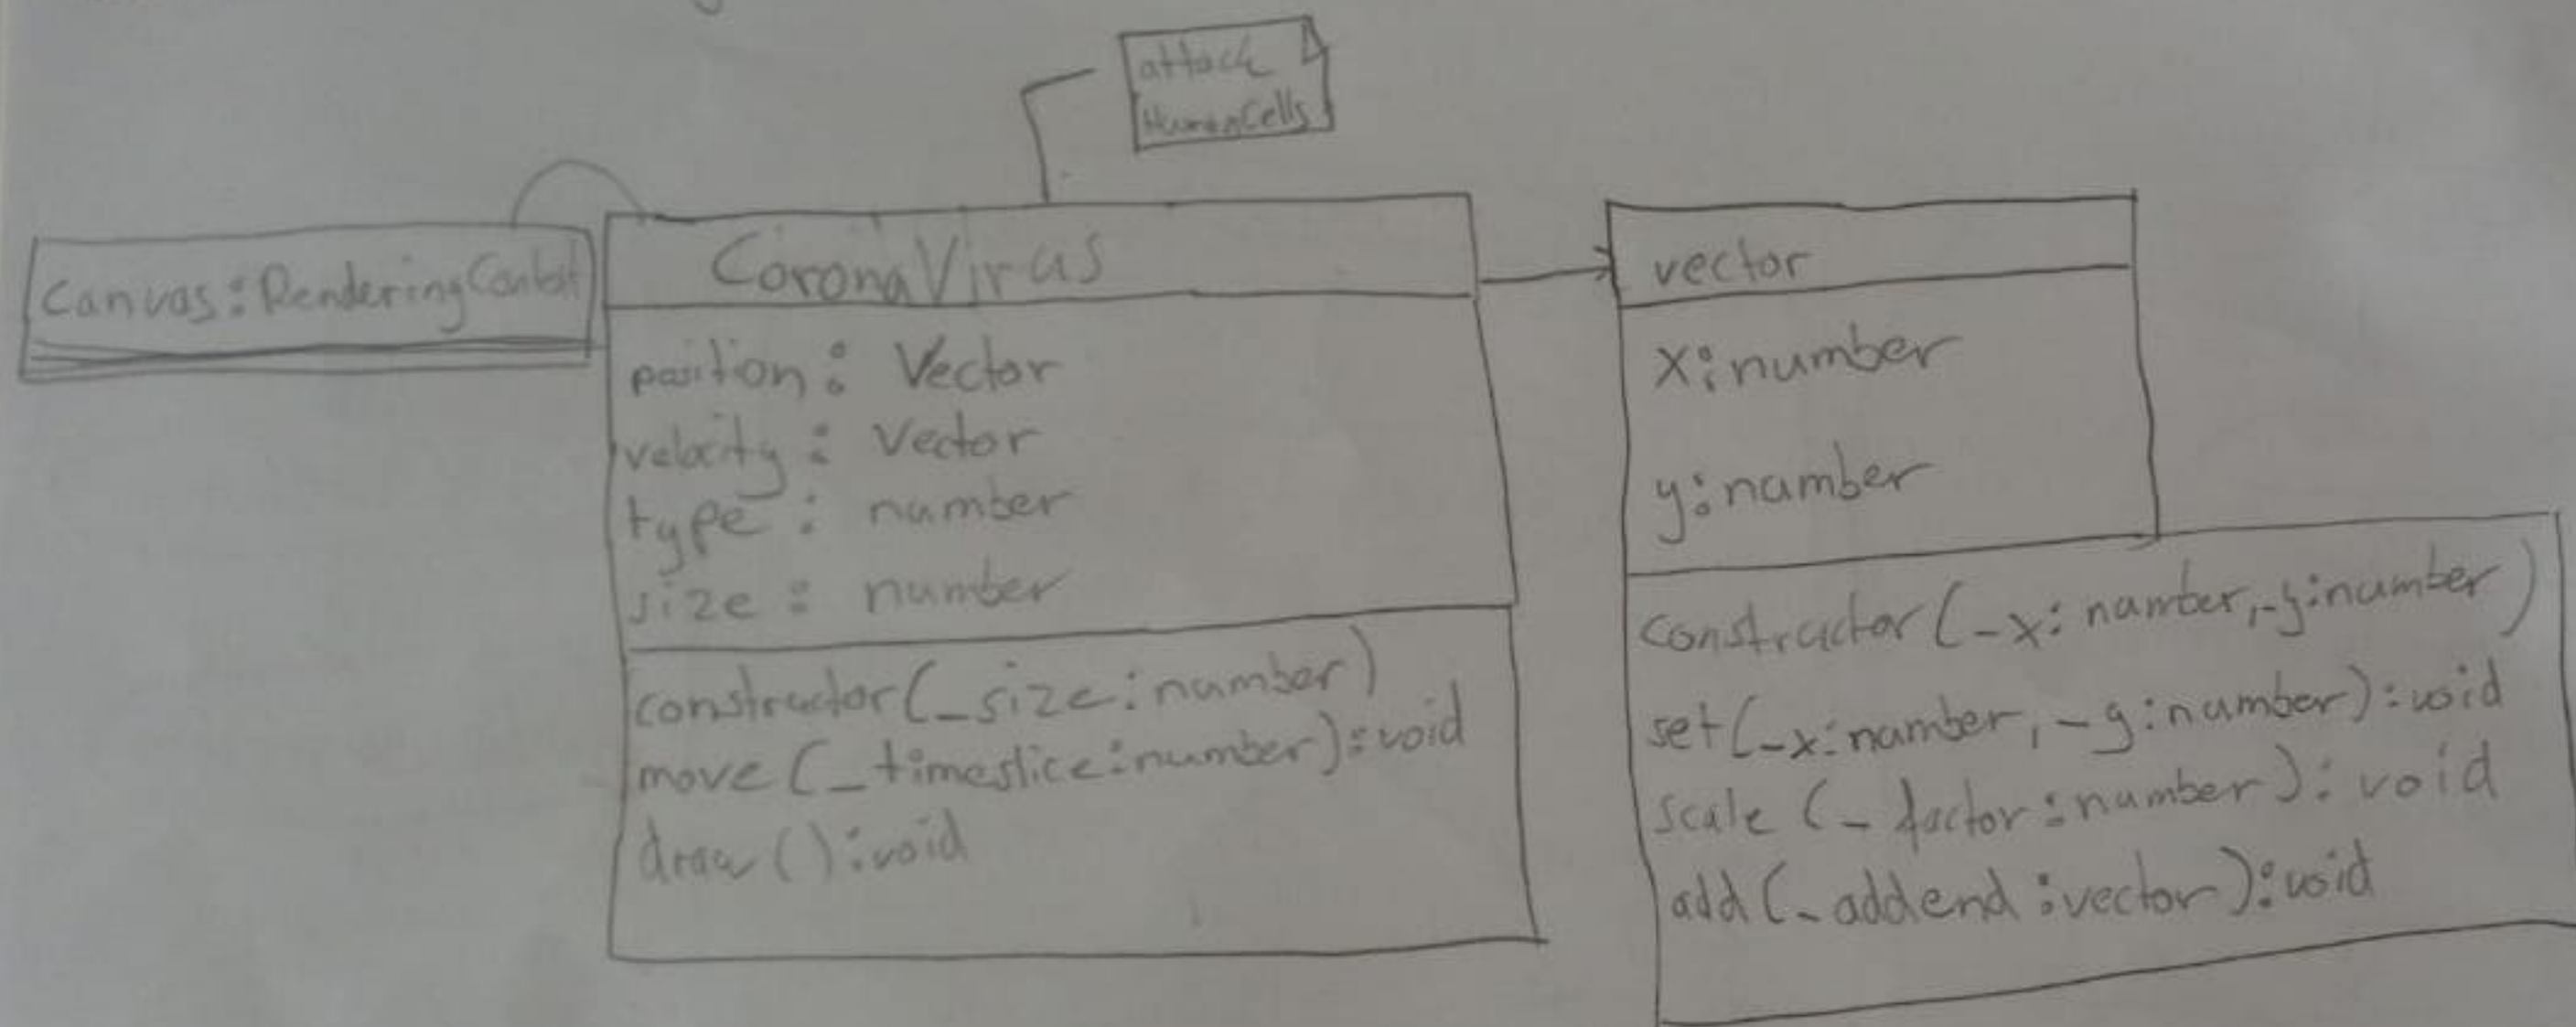 attack
HumanCells
Canvas:RenderingContext
CoronaVirus
position: Vector
velocity: Vector
type: number
size: number
constructor(_size:number)
move(_timeslice:number):void
draw():void
vector
x:number
y:number
constructor(_x: number,_y:number)
set(_x:number,_y:number):void
scale(_factor:number):void
add(_addend:vector):void